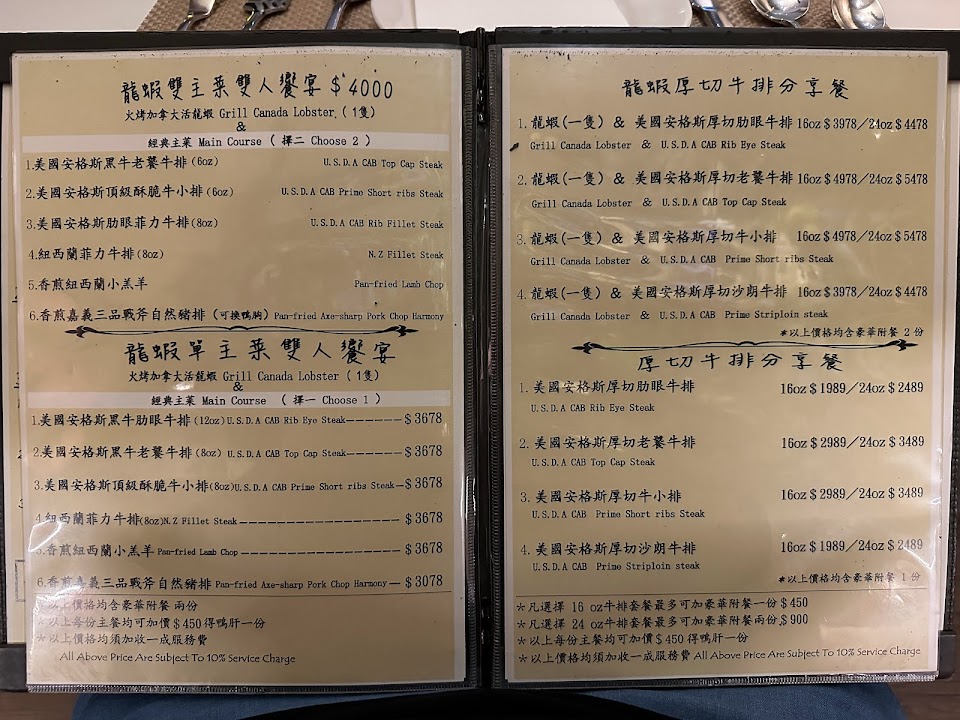 龍蝦雙主菜雙人饗宴 $ 4000
火烤加拿大活龍蝦 Grill Canada Lobster ( 1隻)
&
經典主菜 Main Course ( 擇二 Choose 2 )
1.美國安格斯黑牛老饕牛排(6oz) U.S.D.A CAB Top Cap Steak
2.美國安格斯頂級酥脆牛小排(6oz) U.S.D.A CAB Prime Short ribs Steak
3.美國安格斯肋眼菲力牛排(8oz) U.S.D.A CAB Rib Fillet Steak
4.紐西蘭菲力牛排(8oz) N.Z Fillet Steak
5.香煎紐西蘭小羔羊 Pan-fried Lamb Chop
6.香煎嘉義三品戰斧自然豬排 (可換鴨胸) Pan-fried Axe-sharp Pork Chop Harmony
龍蝦單主菜雙人饗宴
火烤加拿大活龍蝦 Grill Canada Lobster ( 1隻)
&
經典主菜 Main Course ( 擇一 Choose 1 )
1.美國安格斯黑牛肋眼牛排(12oz) U.S.D.A CAB Rib Eye Steak------ $ 3678
2.美國安格斯黑牛老饕牛排(8oz) U.S.D.A CAB Top Cap Steak------- $ 3678
3.美國安格斯頂級酥脆牛小排(8oz)U.S.D.A CAB Prime Short ribs Steak— $ 3678
4.紐西蘭菲力牛排(8oz)N.Z Fillet Steak -------------------- $ 3678
5.香煎紐西蘭小羔羊 Pan-fried Lamb Chop -------------------- $ 3678
6.香煎嘉義三品戰斧自然豬排 Pan-fried Axe-sharp Pork Chop Harmony — $ 3078
*以上價格均含豪華附餐 兩份
*以上每份主餐均可加價 $ 450 得鴨肝一份
*以上價格均須加收一成服務費
All Above Price Are Subject To 10% Service Charge
龍蝦厚切牛排分享餐
1. 龍蝦(一隻) & 美國安格斯厚切肋眼牛排 16oz $ 3978／24oz $ 4478
Grill Canada Lobster & U.S.D.A CAB Rib Eye Steak
2. 龍蝦(一隻) & 美國安格斯厚切老饕牛排 16oz $ 4978／24oz $ 5478
Grill Canada Lobster & U.S.D.A CAB Top Cap Steak
3. 龍蝦(一隻) & 美國安格斯厚切牛小排 16oz $ 4978／24oz $ 5478
Grill Canada Lobster & U.S.D.A CAB Prime Short ribs Steak
4. 龍蝦(一隻) & 美國安格斯厚切沙朗牛排 16oz $ 3978／24oz $ 4478
Grill Canada Lobster & U.S.D.A CAB Prime Striploin steak
*以上價格均含豪華附餐 2 份
厚切牛排分享餐
1. 美國安格斯厚切肋眼牛排 16oz $ 1989／24oz $ 2489
U.S.D.A CAB Rib Eye Steak
2. 美國安格斯厚切老饕牛排 16oz $ 2989／24oz $ 3489
U.S.D.A CAB Top Cap Steak
3. 美國安格斯厚切牛小排 16oz $ 2989／24oz $ 3489
U.S.D.A CAB Prime Short ribs Steak
4. 美國安格斯厚切沙朗牛排 16oz $ 1989／24oz $ 2489
U.S.D.A CAB Prime Striploin steak
*以上價格均含豪華附餐 1 份
*凡選擇 16 oz牛排套餐最多可加豪華附餐一份 $ 450
*凡選擇 24 oz牛排套餐最多可加豪華附餐兩份 $ 900
*以上每份主餐均可加價 $ 450 得鴨肝一份
*以上價格均須加收一成服務費 All Above Price Are Subject To 10% Service Charge